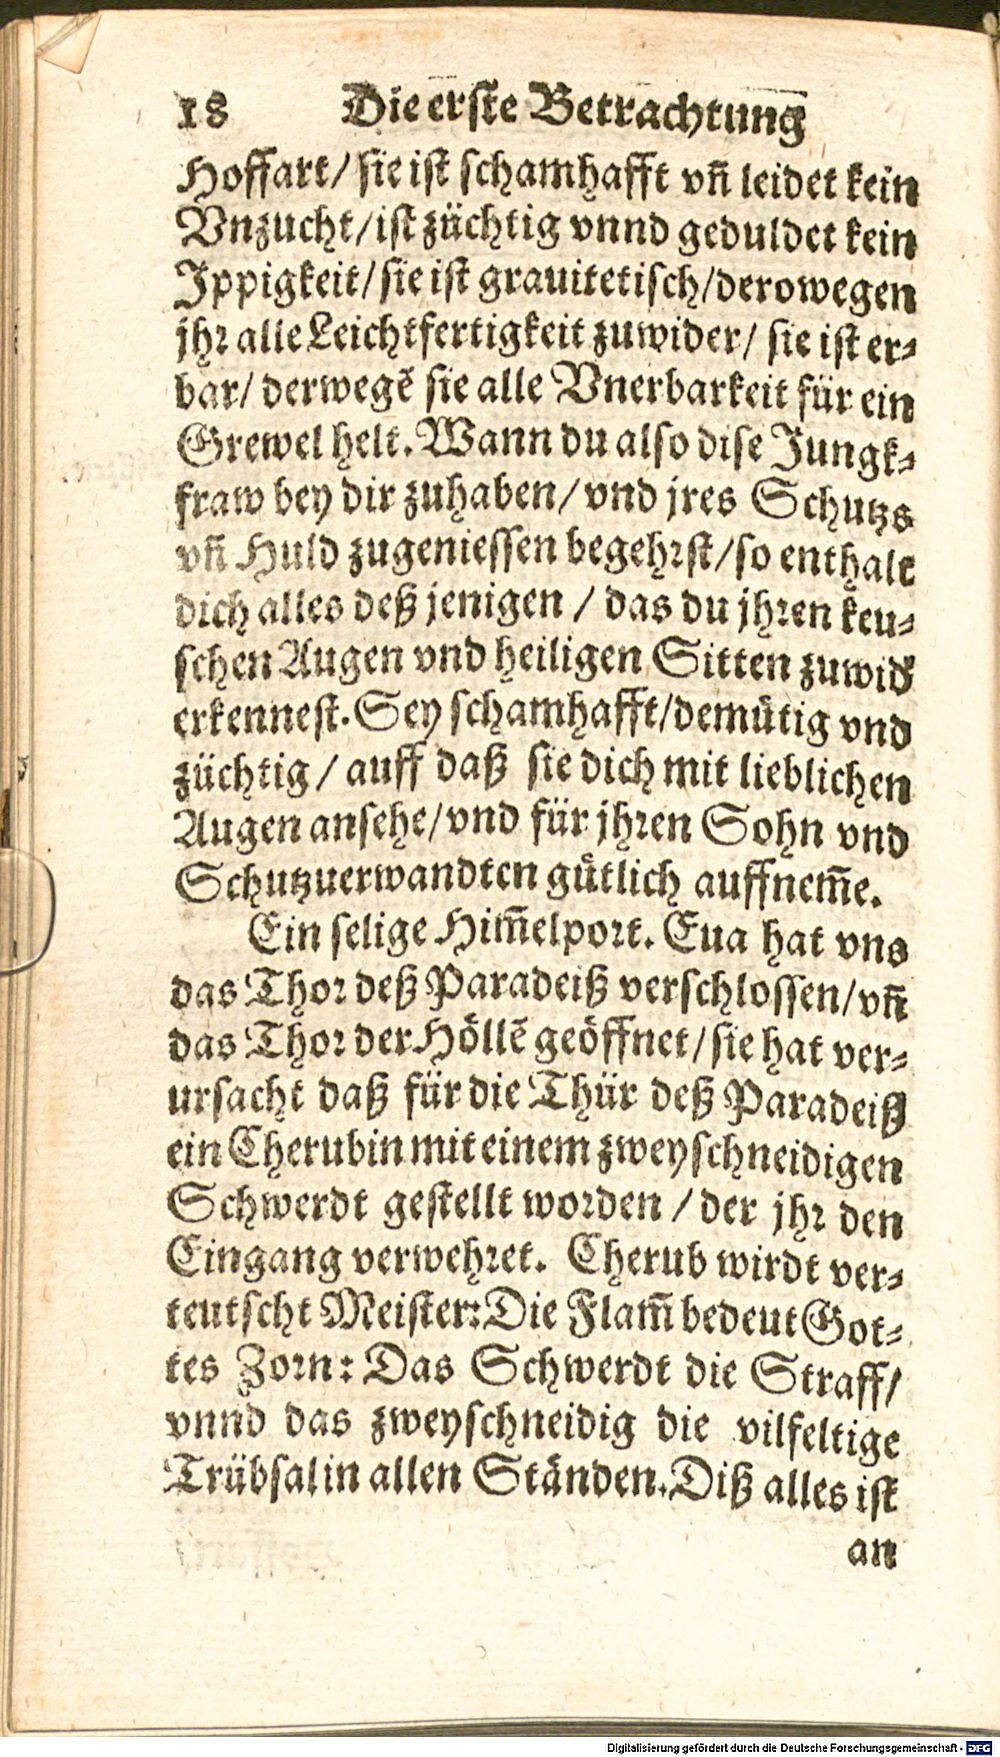 18 Die erste Betrachtung
Hoffart/ sie ist schamhafft vñ leidet kein
Vnzucht/ist züchtig vnnd geduldet kein
Ippigkeit/ sie ist grauitetisch/derowegen
jhr alle Leichtfertigkeit zuwider/ sie ist er-
bar/ derwegẽ sie alle Vnerbarkeit für ein
Grewel helt. Wann du also dise Jungk-
fraw bey dir zuhaben/ vnd jres Schutzs
vñ Huld zugeniessen begehrst/so enthalt
dich alles deß jenigen / das du jhren keu-
schen Augen vnd heiligen Sitten zuwid̕
erkennest. Sey schamhafft/demütig vnd
züchtig/ auff daß sie dich mit lieblichen
Augen ansehe/vnd für jhren Sohn vnd
Schutzuerwandten gütlich auffnem̃e.
Ein selige Him̃elport. Eua hat vns
das Thor deß Paradeiß verschlossen/vñ
das Thor der Höllẽ geöffnet/sie hat ver-
ursacht daß für die Thür deß Paradeiß
ein Cherubin mit einem zweyschneidigen
Schwerdt gestellt worden / der jhr den
Eingang verwehret. Cherub wirdt ver-
teutscht Meister: Die Flam̃ bedeut Got-
tes Zorn: Das Schwerdt die Straff/
vnnd das zweyschneidig die vilfeltige
Trübsal in allen Ständen. Diß alles ist
an
Digitalisierung gefördert durch die Deutsche Forschungsgemeinschaft - DFG